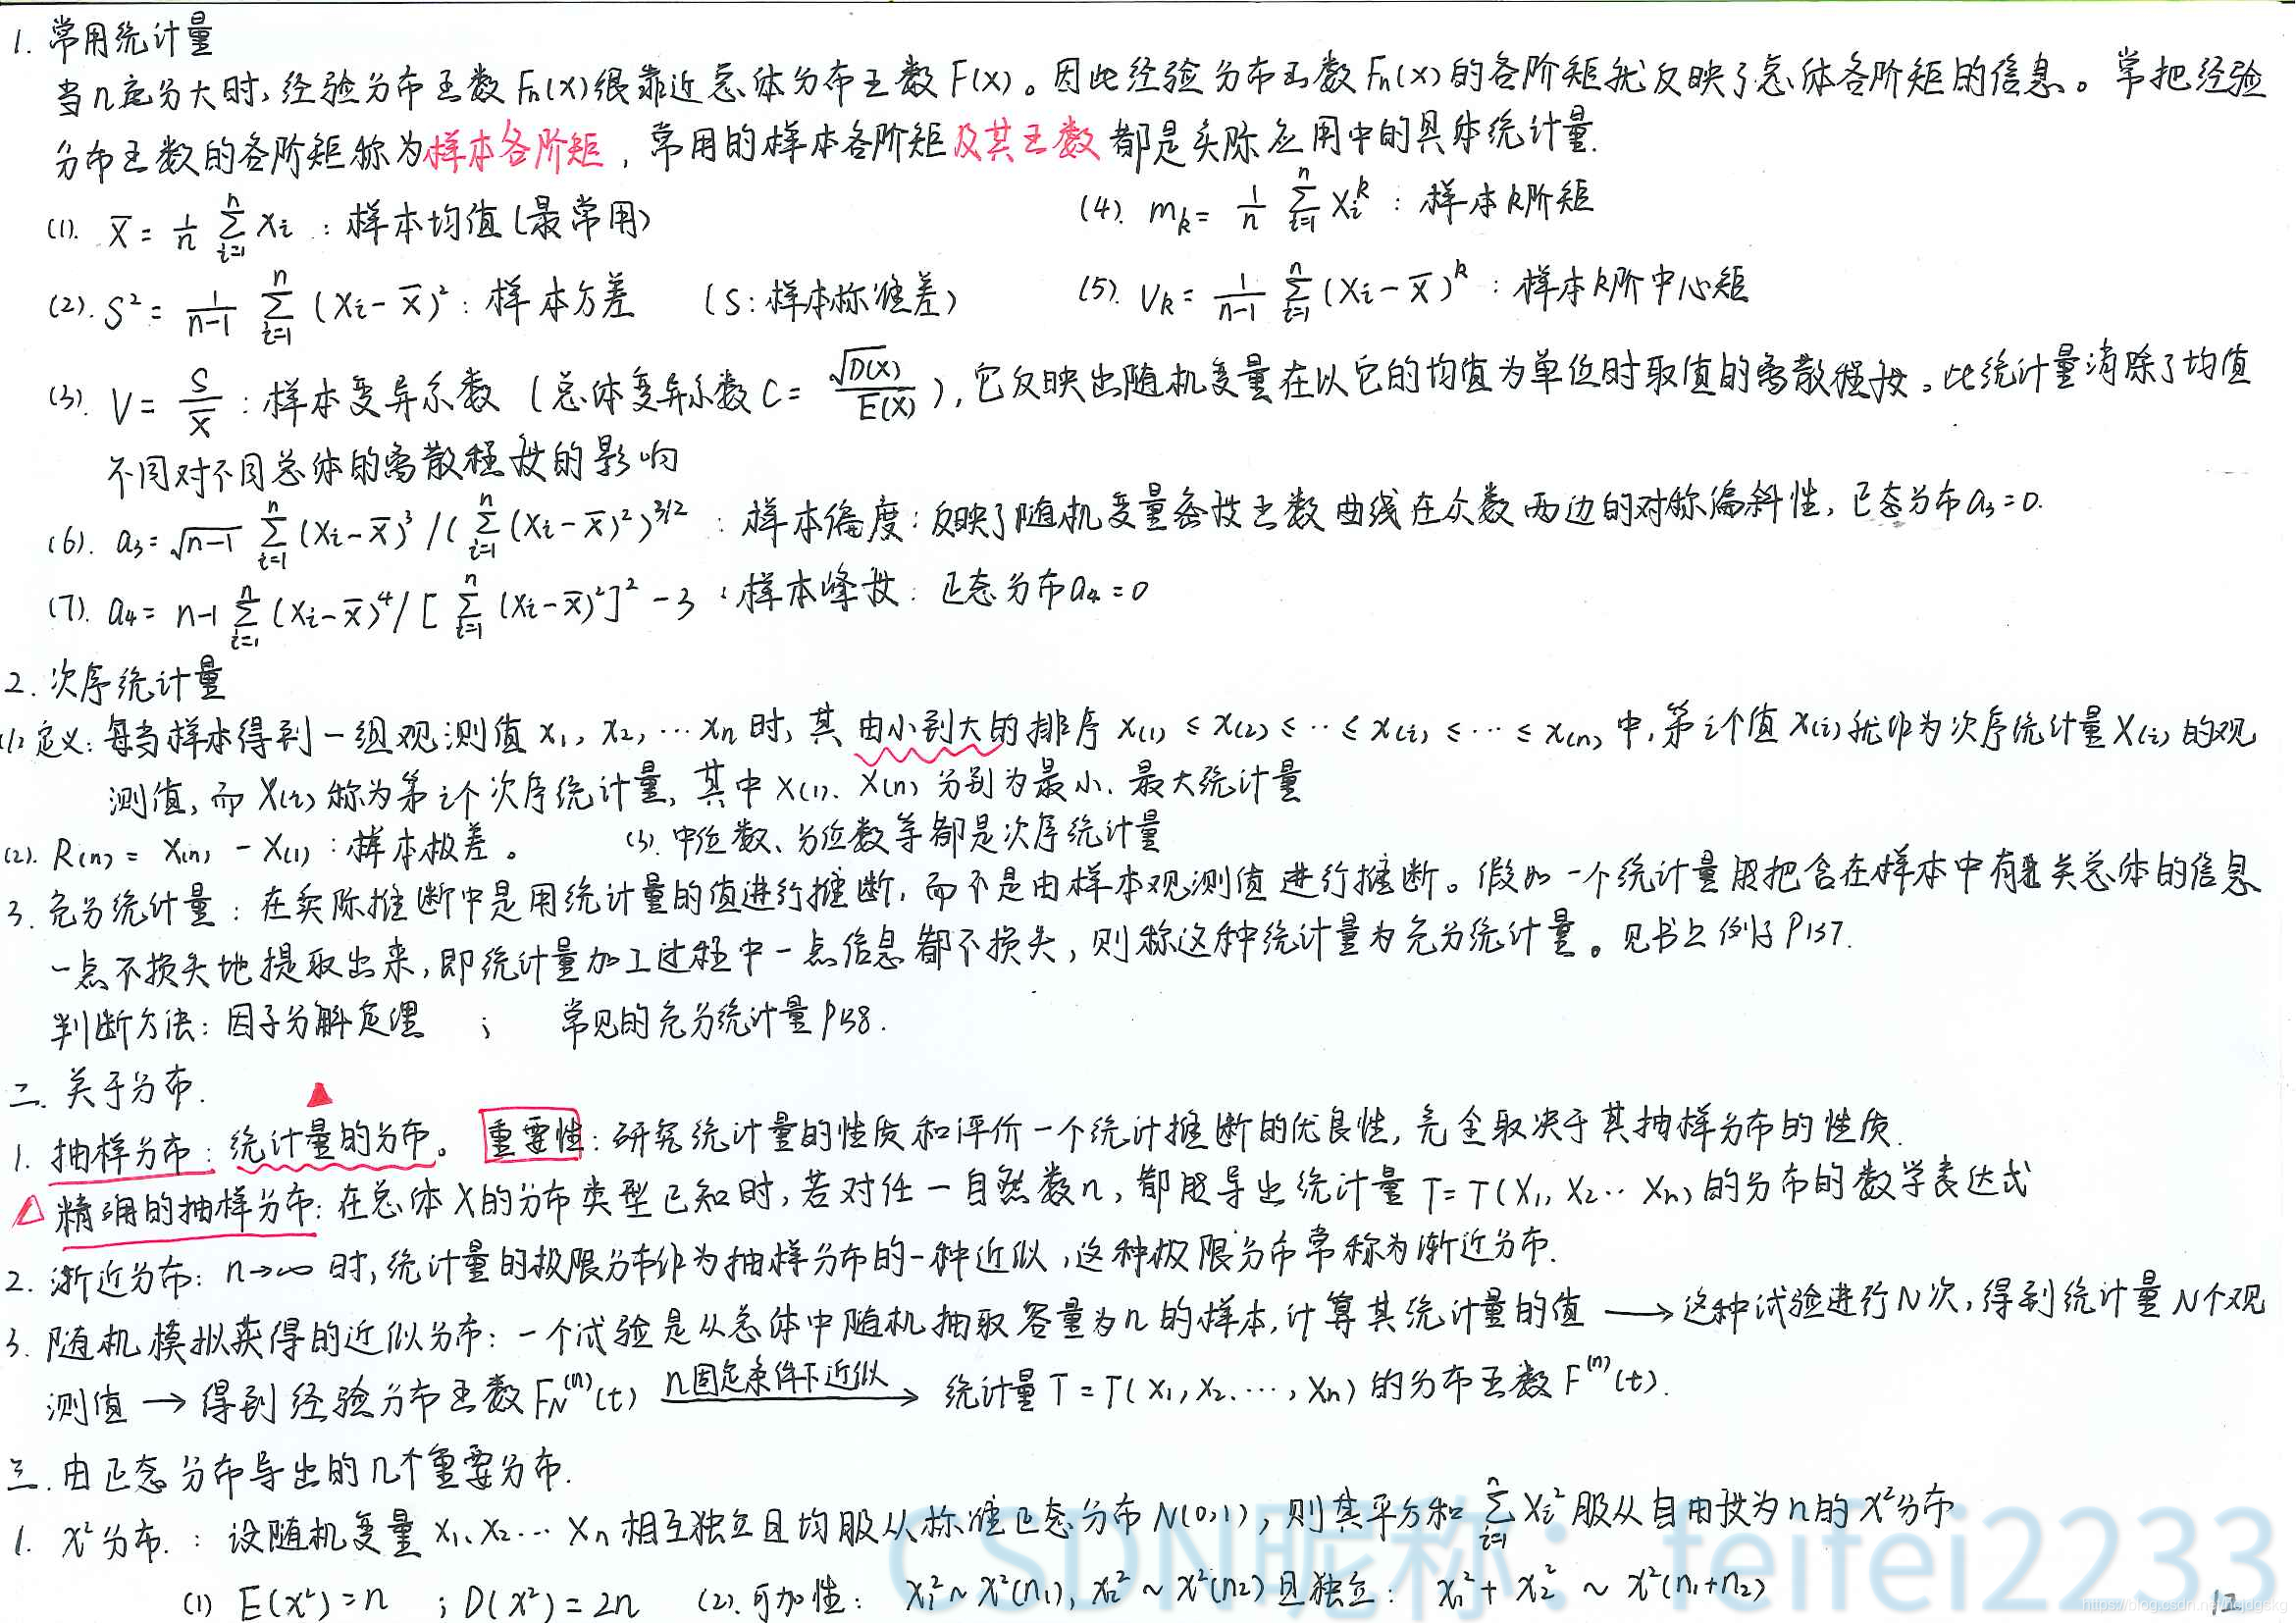 1. 常用统计量
当n充分大时,经验分布函数Fn(x)很靠近总体分布函数F(x)。因此经验分布函数Fn(x)的各阶矩就反映了总体各阶矩的信息。常把经验
分布函数的各阶矩称为样本各阶矩,常用的样本各阶矩及其函数都是实际应用中的具体统计量.
(1). X̄ = 1/n Σ_{i=1}^{n} Xi :样本均值(最常用)
(4). m_k = 1/n Σ_{i=1}^{n} Xi^k :样本k阶矩
(2). S² = 1/(n-1) Σ_{i=1}^{n} (Xi - X̄)² :样本方差 (S:样本标准差)
(5). V_k = 1/(n-1) Σ_{i=1}^{n} (Xi - X̄)^k :样本k阶中心矩
(3). V = S/X̄ :样本变异系数 (总体变异系数C = √D(X)/E(X)),它反映出随机变量在以它的均值为单位时取值的离散程度。此统计量消除了均值
不同对不同总体的离散程度的影响
(6). a3 = √(n-1) Σ_{i=1}^{n} (Xi - X̄)³ / (Σ_{i=1}^{n} (Xi - X̄)²)^{3/2} :样本偏度:反映了随机变量密度函数曲线在众数两边的对称偏斜性,正态分布a3=0.
(7). a4 = n-1 Σ_{i=1}^{n} (Xi - X̄)⁴ / [Σ_{i=1}^{n} (Xi - X̄)²]² - 3 :样本峰度:正态分布a4=0
2. 次序统计量
(1) 定义:每当样本得到一组观测值 x1, x2, ··· xn时,其由小到大的排序 x(1) ≤ x(2) ≤ ·· ≤ x(i) ≤ ··· ≤ x(n) 中,第i个值x(i)就作为次序统计量X(i)的观
测值,而X(i)称为第i个次序统计量,其中X(1)、X(n)分别为最小、最大统计量
(2). R(n) = X(n) - X(1) :样本极差。 (3). 中位数、分位数等都是次序统计量
3. 充分统计量:在实际推断中是用统计量的值进行推断,而不是由样本观测值进行推断。假如一个统计量能把含在样本中有关总体的信息
一点不损失地提取出来,即统计量加工过程中一点信息都不损失,则称这种统计量为充分统计量。见书上例子P157.
判断方法:因子分解定理 ; 常见的充分统计量P158.
二. 关于分布.
1. 抽样分布:统计量的分布。 重要性:研究统计量的性质和评价一个统计推断的优良性,完全取决于其抽样分布的性质.
△ 精确的抽样分布:在总体X的分布类型已知时,若对任一自然数n,都能导出统计量 T=T(X1, X2·· Xn)的分布的数学表达式
2. 渐近分布:n→∞ 时,统计量的极限分布作为抽样分布的一种近似,这种极限分布常称为渐近分布.
3. 随机模拟获得的近似分布:一个试验是从总体中随机抽取容量为n的样本,计算其统计量的值 → 这种试验进行N次,得到统计量N个观
测值 → 得到经验分布函数F_N^(n)(t) n固定条件下近似→ 统计量T=T(X1, X2, ···, Xn)的分布函数F^(n)(t).
三. 由正态分布导出的几个重要分布.
1. χ²分布. :设随机变量 X1、X2··· Xn相互独立且均服从标准正态分布N(0,1),则其平方和 Σ_{i=1}^{n} Xi² 服从自由度为n的χ²分布
(1) E(χ²)=n ; D(χ²)=2n (2).可加性: χ1² ~ χ²(n1), χ2² ~ χ²(n2)且独立: χ1² + χ2² ~ χ²(n1+n2)
CSDN昵称: feifei2233